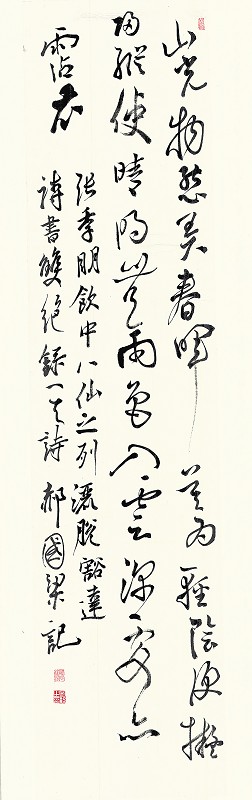 山光物態弄春暉莫為輕陰便擬
歸縱使晴明無雨色入雲深處亦
霑衣
張季明飲中八仙之列灑脫豁達
詩書雙絕錄其詩郝國梁記